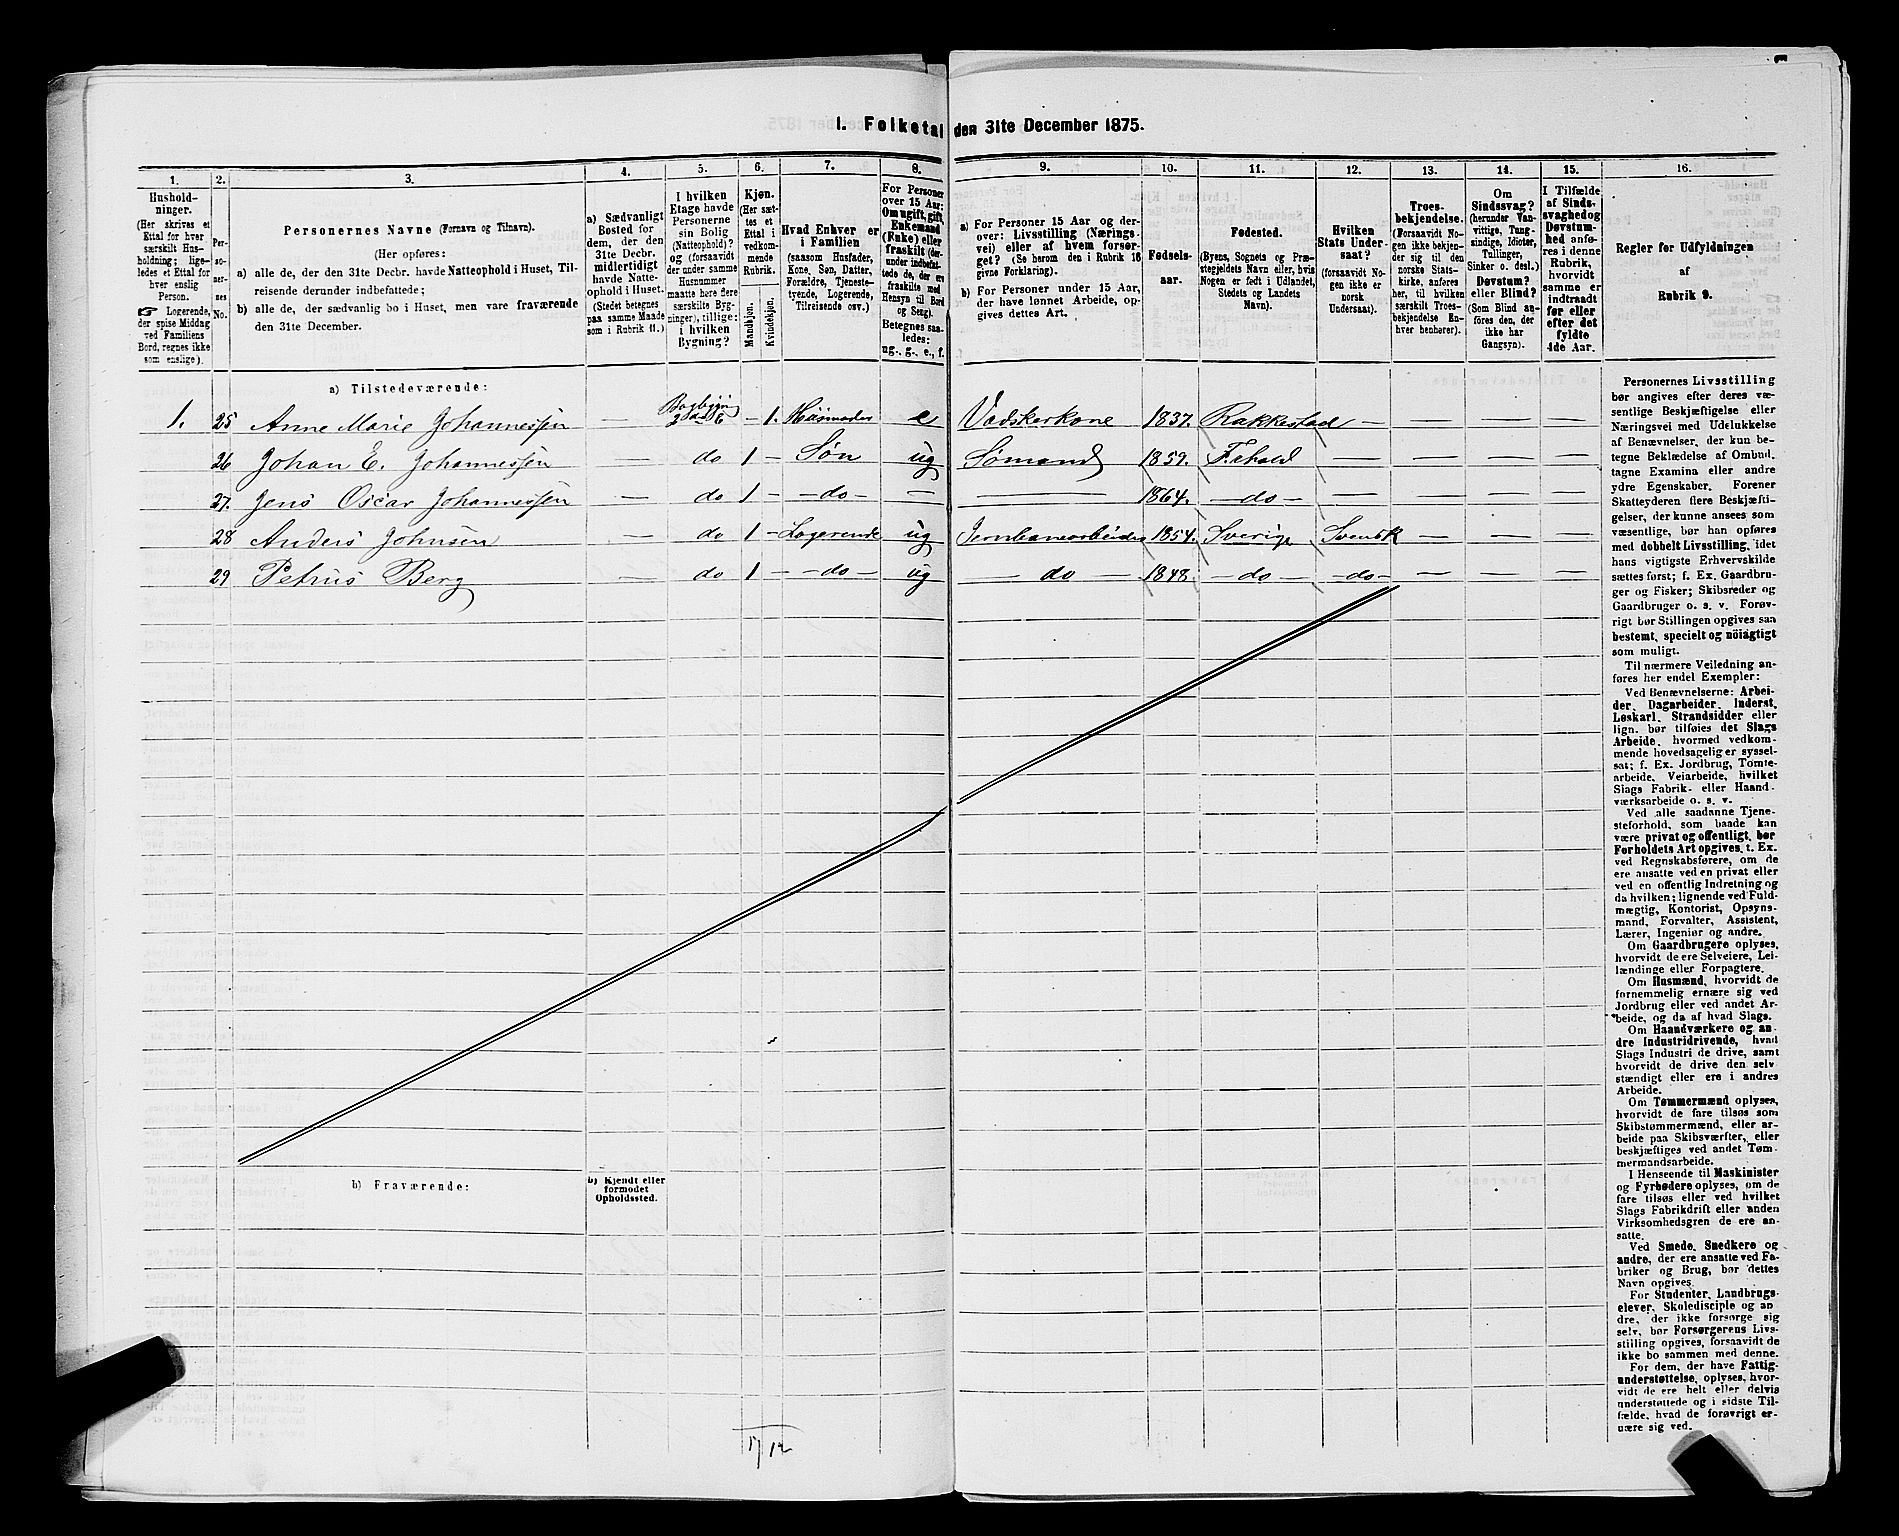 1. Folketal den 31te December 1875.
1. 2. 3. 4. 5. 6. 7. 8. 9. 10. 11. 12. 13. 14. 15. 16.
Husholdninger.
(Her skrives et
Ettal for hver
særskilt Husholdning;
ligeledes et Ettal for
hver enslig
Person.
☞ Logerende,
der spise Middag
ved Familiens
Bord, regnes ikke
som enslige).
Personernes No.
Personernes Navne (Fornavn og Tilnavn).
(Her opføres:
a) alle de, der den 31te Decbr. havde Natteophold i Huset, Tilreisende derunder indbefattede;
b) alle de, der sædvanlig bo i Huset, men vare fraværende
den 31te December.
a) Sædvanligt
Bosted for
dem, der den
31te Decbr.
midlertidigt
havde Natteophold
i Huset.
(Stedet betegnes
paa samme Maade
som i Rubrik 11.)
I hvilken
Etage havde
Personerne
sin Bolig
(Natteophold)?
og (forsaavidt
der under samme
Husnummer
maatte høre flere
særskilte Bygninger),
tillige:
i hvilken
Bygning?
Kjøn.
(Her sættes
et
Ettal i
vedkommende
Rubrik.
Mandkjøn.
Kvindekjøn.
Hvad Enhver er
i Familien
(saasom Husfader,
Kone, Søn, Datter,
Forældre, Tjenestetyende,
Logerende,
Tilreisende osv.)
For Personer
over 15 Aar:
Om ugift, gift,
Enkemand
(Enke) eller
fraskilt (derunder
indbefattede
de, der ere
fraskilte med
Hensyn til Bord
og Seng).
Betegnes saaledes:
ug., g., e., f.
a) For Personer 15 Aar og derover:
Livsstilling (Næringsvei)
eller af hvem forsørget?
(Se herom den i Rubrik 16
givne Forklaring).
b) For Personer under 15 Aar,
der have lønnet Arbeide, opgives
dettes Art.
Fødselsaar.
Fødested.
(Byens, Sognets og Præstegjeldets
Navn eller, hvis
Nogen er født i Udlandet,
Stedets og Landets
Navn).
Hvilken
Stats Undersaat?
(forsaavidt Nogen
ikke er
norsk
Undersaat).
Troesbekjendelse.
(Forsaavidt Nogen
ikke bekjender
sig til den
norske Statskirke,
anføres
her, til hvilken
særskilt Troesbekjendelse
Enhver
henhører).
Om
Sindssvag?
(herunder Vanvittige,
Tungsindige,
Idioter,
Tullinger,
Sinker o. desl.)
Døvstum?
eller Blind?
(Som Blind anføres
den, der
ikke har
Gangsyn).
I Tilfælde
af Sindssvaghed
og
Døvstumhed
anføres
i denne
Rubrik,
hvorvidt
samme er
indtraadt
før eller
efter det
fyldte
4de Aar.
Regler for Udfyldningen
af
Rubrik 9.
a) Tilstedeværende:
1. 25 Anne Marie Johannessen — Bagbygn 2den E — 1. Husmoder e Vadskerkone 1837. Rakkestad — — — —
26 Johan E. Johannessen — do 1 — Søn ug Sømand 1859. Fehold — — — —
27. Jens Oscar Johannessen — do 1 — — do — — — 1864. — do — — — — —
28 Anders Johnsen — do 1 — Logerende ug Jernbanearbeider 1854. Sverige Svensk — — —
29 Petrus Berg — do 1 — — do — ug — do — 1848. — do — — do — — — —
b) Fraværende:
b) Kjendt eller
formodet
Opholdssted.
Personernes Livsstilling
bør angives efters deres væsentlige
Beskjæftigelse eller
Næringsvei med Udelukkelse
af Benævnelser, der kun betegne
Beklædelse af Ombud,
tagne Examina eller andre
ydre Egenskaber. Forener
Skatteyderen flere Beskjæftigelser,
der kunne ansees som
væsentlige, bør han opføres
med dobbelt Livsstilling, idet
hans vigtigste Erhvervskilde
sættes først; f. Ex. Gaardbruger
og Fisker; Skibsreder og
Gaardbruger o. s. v. Forøvrigt
bør Stillingen opgives saa
bestemt, specielt og nöiagtigt
som muligt.
Til nærmere Veiledning anføres
her endel Exempler:
Ved Benævnelserne: Arbeider,
Dagarbeider, Inderst,
Løskarl, Strandsidder eller
lign. bør tilføies det Slags
Arbeide, hvormed vedkommende
hovedsagelig er sysselsat;
f. Ex. Jordbrug, Tomtearbeide,
Veiarbeide, hvilket
Slags Fabrik- eller Haandværksarbeide
o. s. v.
Ved alle saadanne Tjenesteforhold,
som baade kan
være privat og offentligt, bør
Forholdets Art opgives, t. Ex.
ved Regnskabsførere, om de
ere ansatte ved en privat eller
ved en offentlig Indretning og
da hvilken; lignende ved Fuldmægtig,
Kontorist, Opsynsmand,
Forvalter, Assistent,
Lærer, Ingeniør og andre.
Om Gaardbrugere oplyses,
hvorvidt de ere Selveiere, Leilændinge
eller Forpagtere.
Om Husmænd, hvorvidt de
fornemmelig ernære sig ved
Jordbrug eller ved andet Arbeide,
og da af hvad Slags.
Om Haandværkere og andre
Industridrivende, hvad
Slags Industri de drive, samt
hvorvidt de drive den selvstændigt
eller ere i andres
Arbeide.
Om Tømmermænd oplyses,
hvorvidt de fare tilsøs som
Skibstømmermænd, eller arbeide
paa Skibsværfter, eller
beskjæftiges ved andet Tømmermandsarbeide.
I Henseende til Maskinister
og Fyrbødere oplyses, om de
fare tilsøs eller ved hvilket
Slags Fabrikdrift eller anden
Virksomhedsgren de ere ansatte.
Ved Smede, Snedkere og
andre, der ere ansatte ved Fabriker
og Brug, bør dettes
Navn opgives.
For Studenter, Landbrugselever,
Skoledisciple og andre,
der ikke forsørge sig
selv, bør Forsørgerens Livsstilling
opgives, forsaavidt de
ikke bo sammen med denne.
For dem, der have Fattigunderstøttelse,
oplyses, hvorvidt
de ere helt eller delvis
understøttede og i sidste Tilfælde,
hvad de forøvrigt ernære
sig ved.
17/12